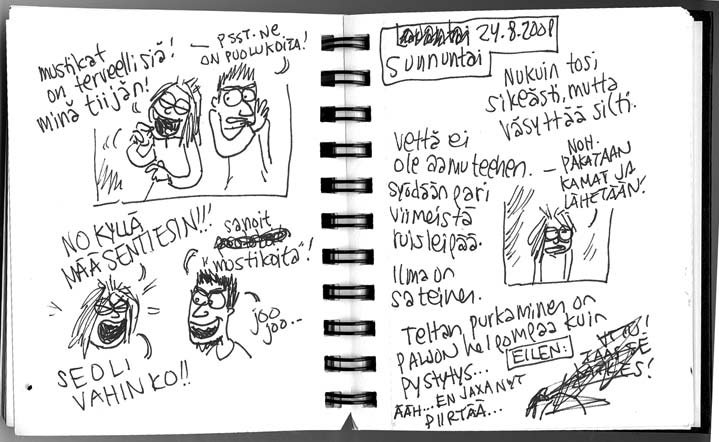 mustikat
on terveellisiä!
minä tiijän!
— PSST. NE
ON PUOLUKOITA!
NO KYLLÄ
MÄÄ SEN TIESIN!!!
SE OLI
VAHINKO!!
sanoit
"mustikoita"!
joo
joo...
24.8.2008
Sunnuntai
Nukuin tosi
sikeästi, mutta
väsyttää silti.
Vettä ei
ole aamuteehen.
Syödään pari
viimeistä
ruisleipää.
— NOH.
PAKATAAN
KAMAT JA
LÄHETÄÄN!
Ilma on
sateinen.
Teltan purkaminen on
paljon helpompaa kuin
pystytys...
EILEN:
ÄÄH... EN JAXA NYT
PIIRTÄÄ...